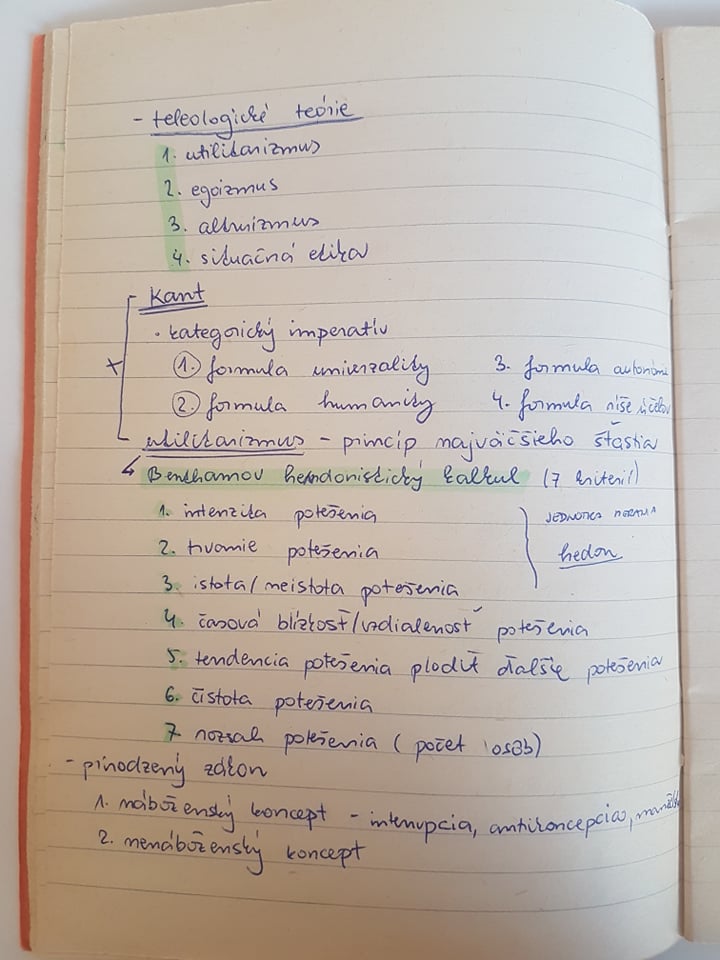 - teleologické teórie
1. utilitarizmus
2. egoizmus
3. altruizmus
4. situačná etika
Kant
• kategorický imperatív
1. formula univerzality 3. formula autonómie
2. formula humanity 4. formula ríše účelov
utilitarizmus - princíp najväčšieho šťastia
Benthamov hedonistický kalkul (7 kritérií)
1. intenzita potešenia JEDNOTKA MERANIA
2. trvanie potešenia hedon
3. istota/neistota potešenia
4. časová blízkosť/vzdialenosť potešenia
5. tendencia potešenia plodiť ďalšie potešenia
6. čistota potešenia
7. rozsah potešenia (počet osôb)
- prirodzený zákon
1. náboženský koncept - interrupcia, antikoncepcia,
2. nenáboženský koncept